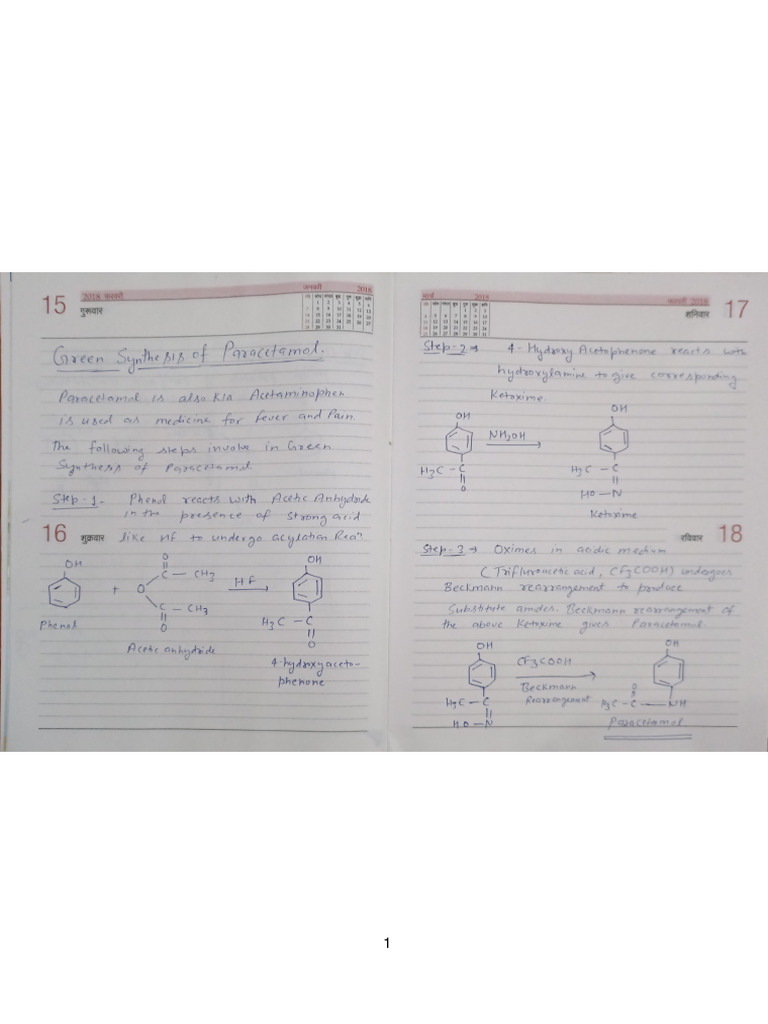 15
2018 फरवरी
जनवरी 2018
गुरूवार
Green Synthesis of Paracetamol.
Paracetamol is also K/a Acetaminophen
is used as medicine for fever and Pain.
The following steps involve in Green
Synthesis of Paracetamol.
Step-1- Phenol reacts with Acetic Anhydride
in the presence of strong acid
16 शुक्रवार
like HF to undergo acylation Reaⁿ
OH
Phenol
+
O
C
CH3
O
C
CH3
O
Acetic anhydride
HF
OH
H3C - C
O
4-hydroxyaceto-
phenone
मार्च 2018
फरवरी 2018
17
शनिवार
Step-2 → 4-Hydroxy Acetophenone reacts with
hydroxylamine to give corresponding
Ketoxime
OH
H3C - C
O
NH2OH
OH
H3C - C
HO - N
Ketoxime
रविवार 18
Step-3 → Oximes in acidic medium
(Trifluroacetic acid, CF3COOH) undergoes
Beckmann rearrangement to produce
Substitute amides. Beckmann rearrangement of
the above Ketoxime gives Paracetamol.
OH
H3C - C
HO - N
CF3COOH
Beckmann
Rearrangement
OH
O
H3C - C - NH
Paracetamol
1